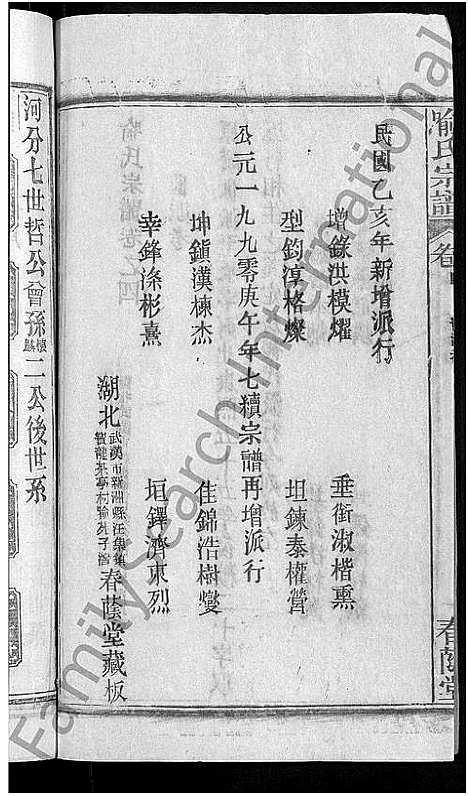 喻氏宗譜
卷四
春蔭堂
民國乙亥年新增派行
增錄洪模燿 垂銜淑楷熏
型鈞淳格燦 坦鍊泰權營
公元一九九零庚午年七續宗譜再增派行
坤鎮漢棟杰 佳錦浩樹燮
幸鋒滌彬熹 垣鐸濟東烈
湖北武漢市新洲縣汪集鎮 春蔭堂藏板
河分七世哲公曾孫 二公後世系
FamilySearch International